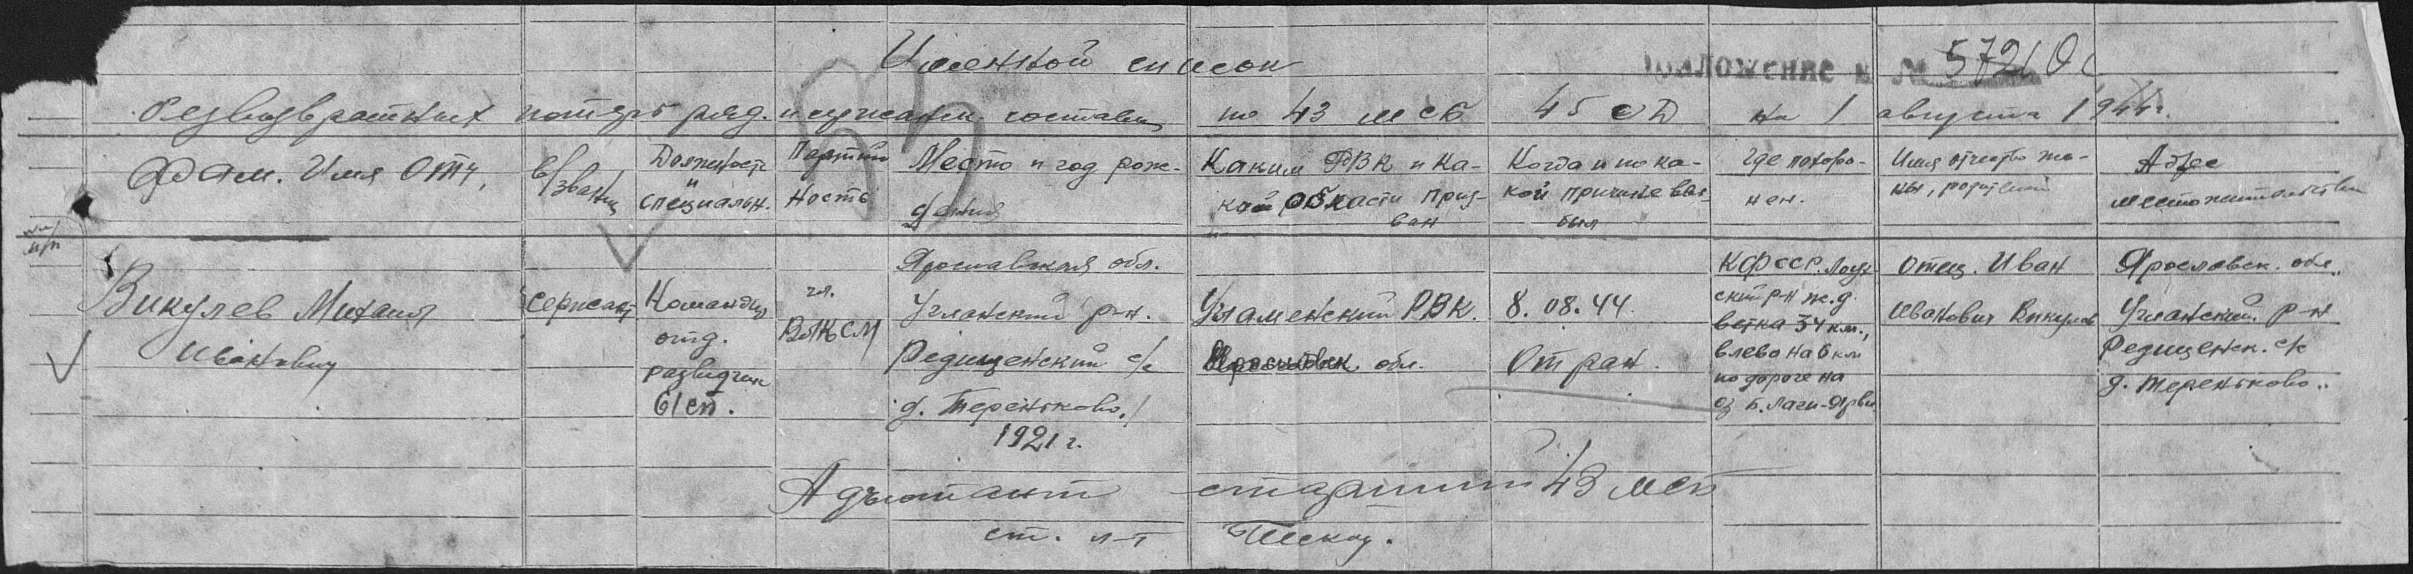 Именной список
Приложение к № 57210с
безвозвратных потерь ряд. и сержан. состава по 43 мсб 45 сД на 1 августа 1944 г.
№№ п/п
Фам. Имя Отч.
в/звание
Должность и специальн.
Партийность
Место и год рож-
дения
Каким РВК и ка-
кой области приз-
ван
Когда и по ка-
кой причине вы-
был
Где похоро-
нен.
Имя отчество же-
ны, родителей
Адрес
местожительства
Викулев Михаил
Иванович
сержант
Командир
отд.
разведчик
61 сп.
чл.
ВЛКСМ
Ярославская обл.
Угланский р-н.
Редищенский с/с
д. Тереньково.
1921 г.
РВК.
обл.
8.08.44.
От ран.
КФССР. Лоух
ский р-н ж.д.
ветка 34 км.,
влево на 6 км
по дороге на
оз Б. Лаги-Ярви
отец. Иван
Иванович Викулев
Ярославск. обл.
Угланский. р-н
Редищенск. с/с
д. Тереньково..
Адъютант старший 43 мсб
ст. л-т